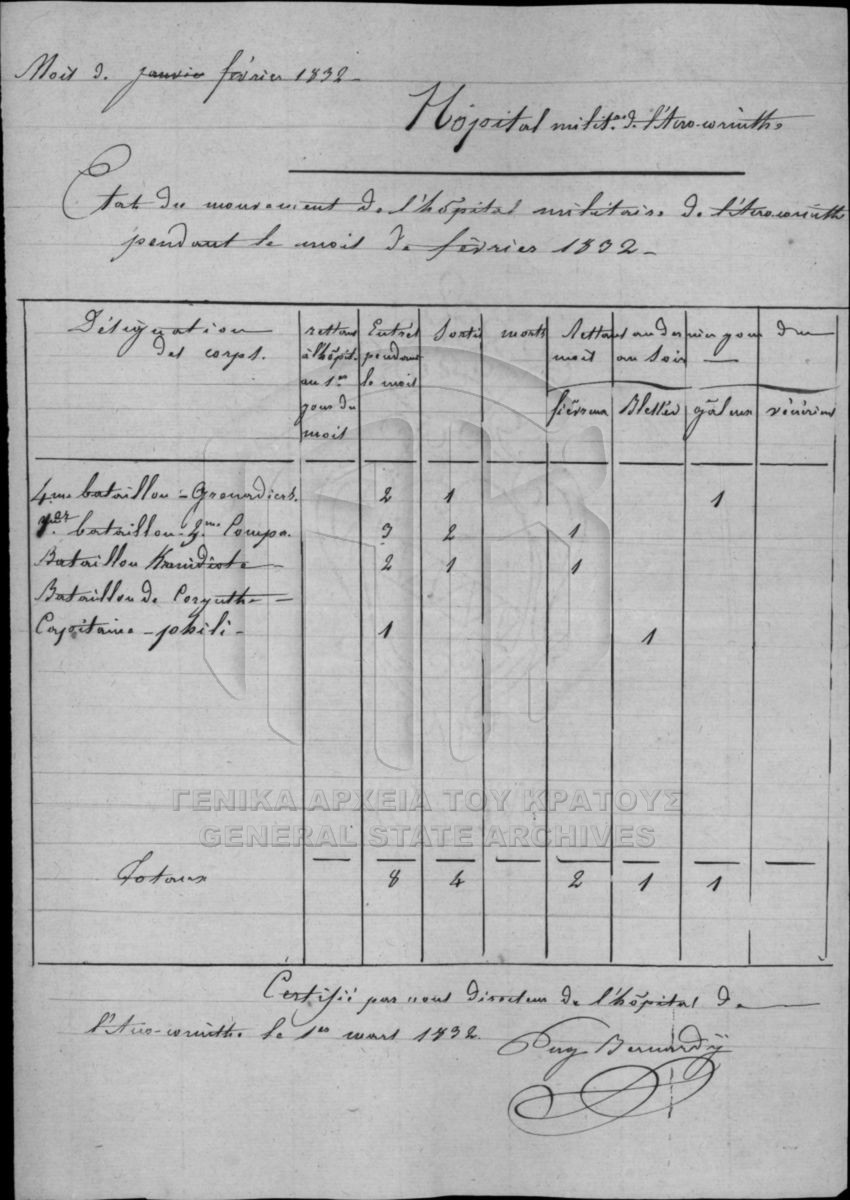 Mois de janvier février 1832 -
Hôpital milit.re de l'Acro-corinthe
Etat du mouvement de l'hôpital militaire de l'Acro-corinthe
pendant le mois de février 1832 -
Désignation des corps.
restans à l'hôpit. au 1er jour du mois
Entrés pendant le mois
Sortis
morts
Restans au dernier jour du
mois au soir —
fiévreux
Blessés
gâleux
vénériens
4.me bataillon - Grenadiers. 2 1 1
1er bataillon - 2.me Compa. 3 2 1
Bataillon Kranidiote 2 1 1
Bataillon de Corynthe -
Capitaine - phili - 1 1
ΓΕΝΙΚΑ ΑΡΧΕΙΑ ΤΟΥ ΚΡΑΤΟΥΣ
GENERAL STATE ARCHIVES
Totaux 8 4 2 1 1
Certifié par nous directeur de l'hôpital de
l'Acro-corinthe le 1er mars 1832.
Puy Bernardÿ